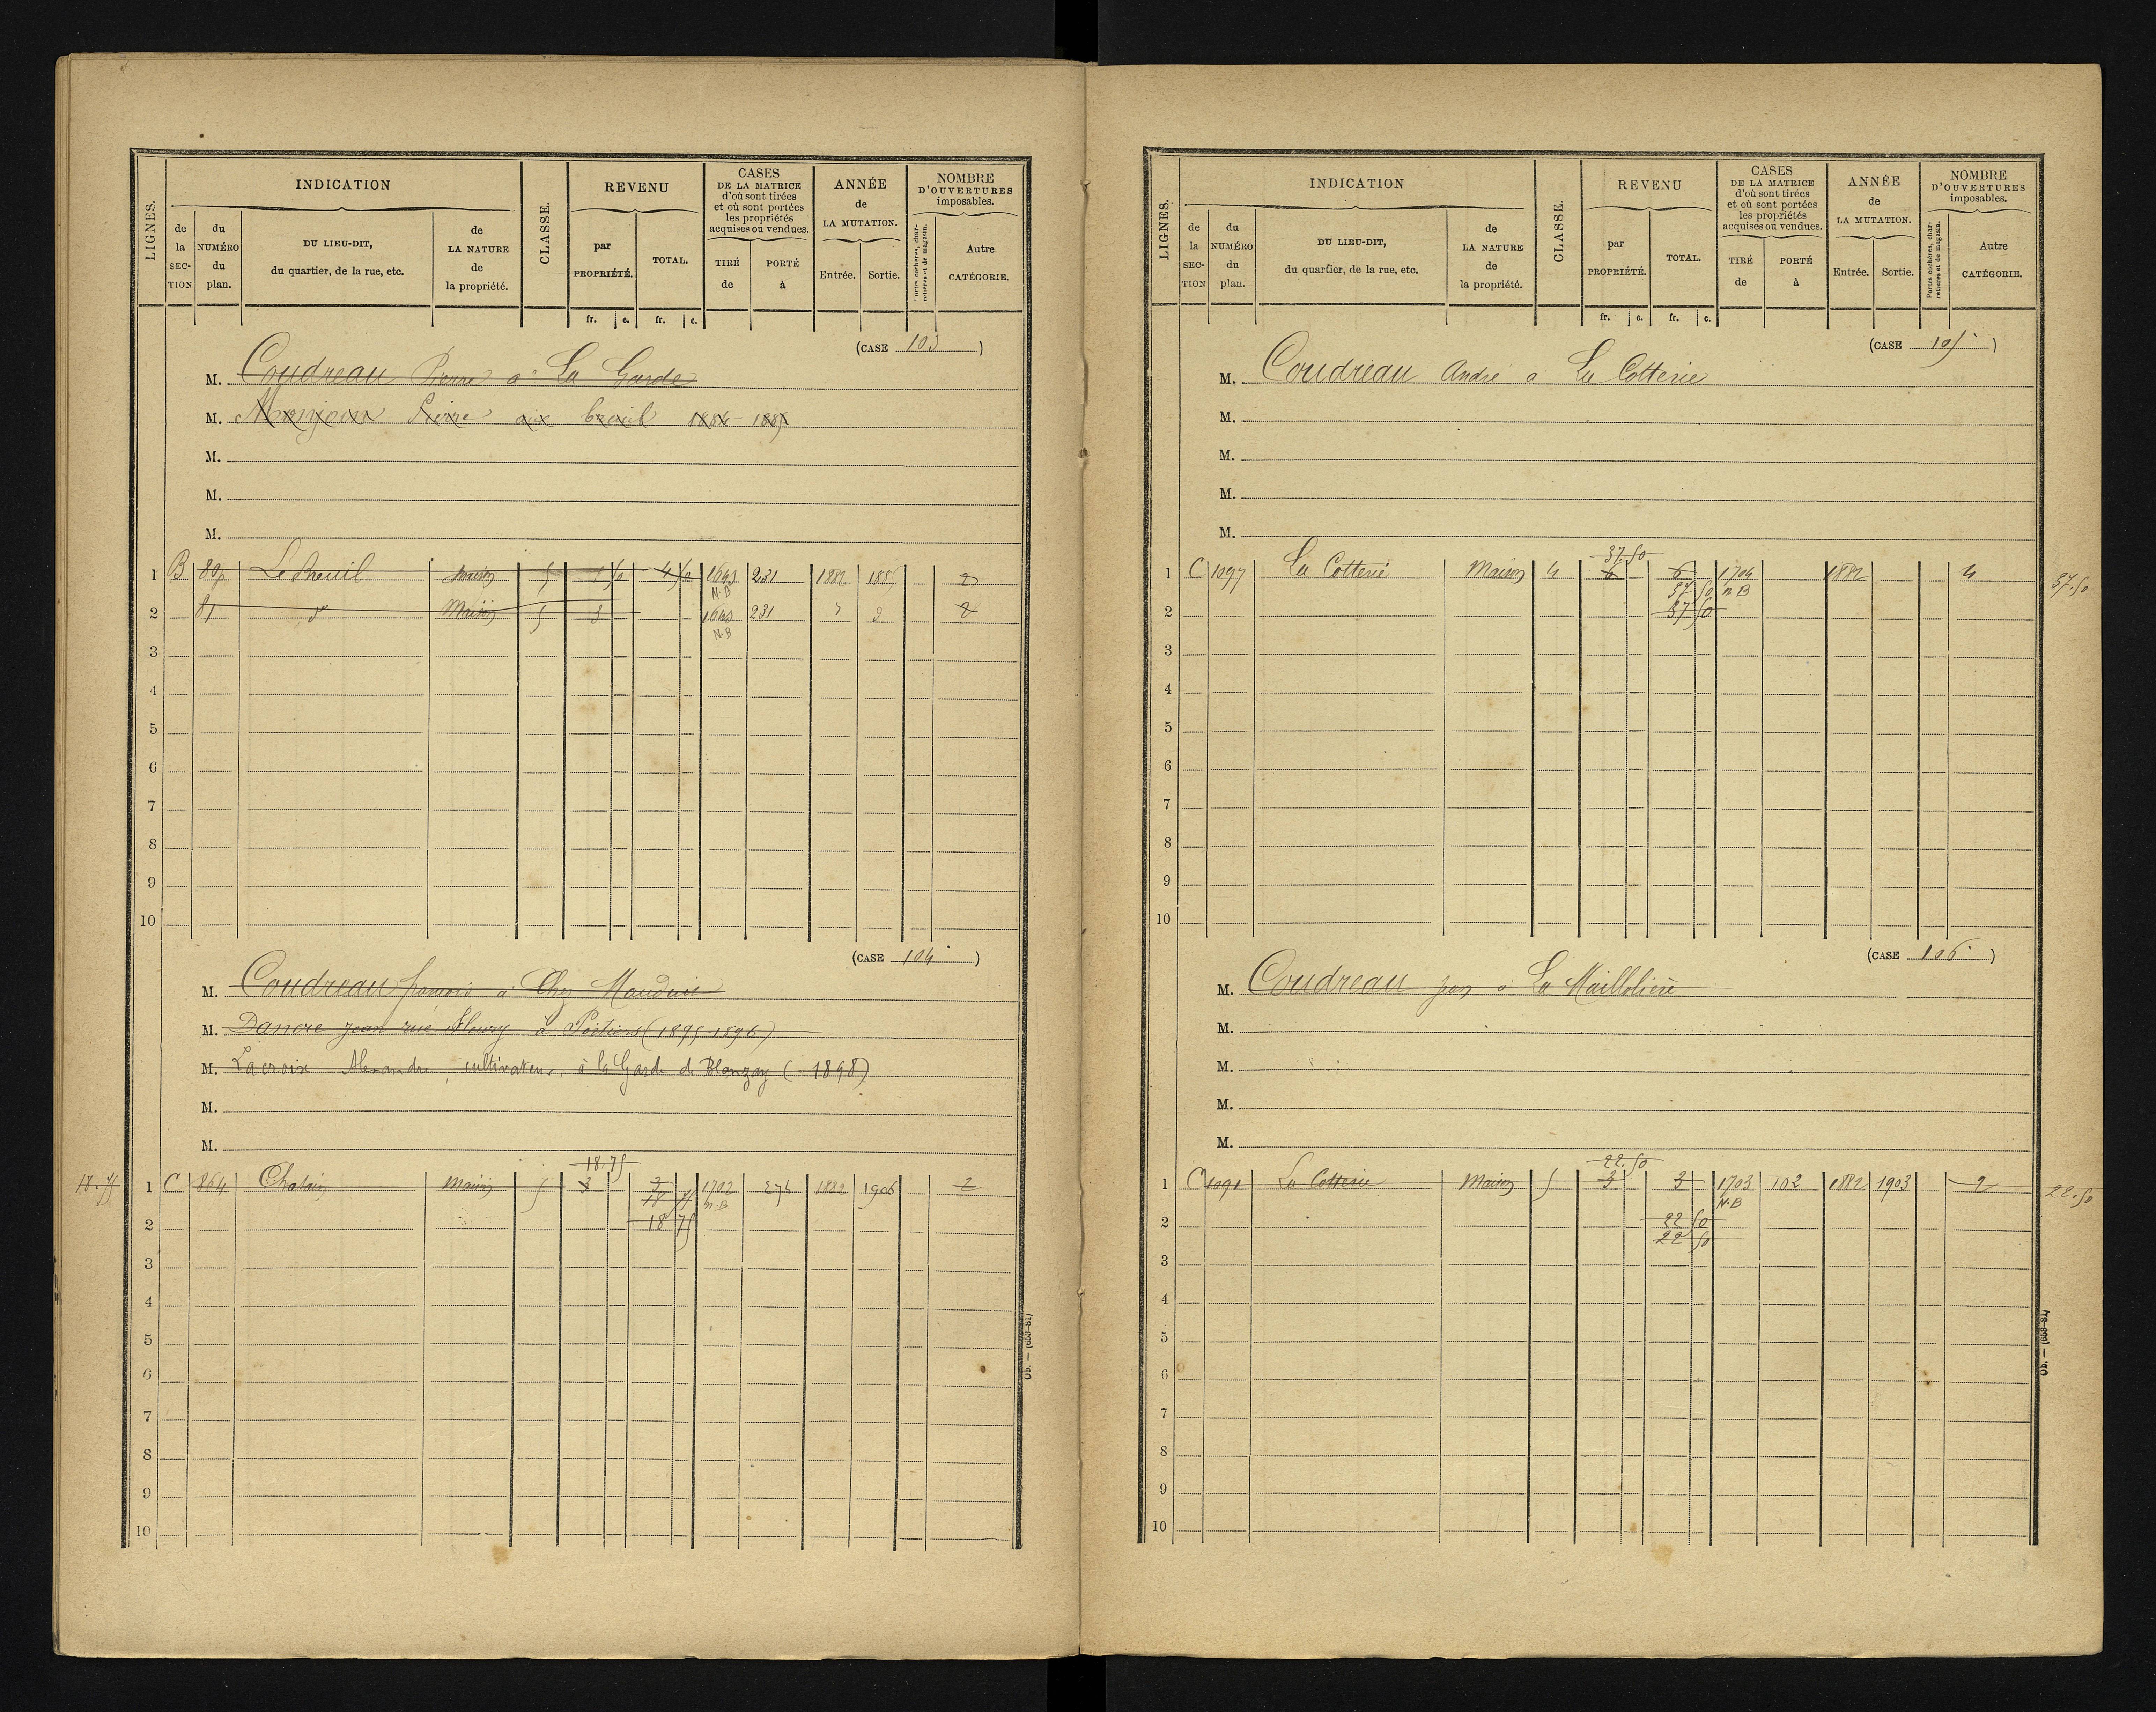 LIGNES.
INDICATION
de la SECTION
du NUMÉRO du plan.
DU LIEU-DIT, du quartier, de la rue, etc.
de LA NATURE de la propriété.
CLASSE.
REVENU
par PROPRIÉTÉ.
TOTAL.
fr. c. fr. c.
CASES DE LA MATRICE d'où sont tirées et où sont portées les propriétés acquises ou vendues.
TIRÉ de
PORTÉ à
ANNÉE de LA MUTATION.
Entrée. Sortie.
NOMBRE D'OUVERTURES imposables.
Portes cochères, charretières et de magasin.
Autre CATÉGORIE.
(CASE 103)
M. Coudreau Pierre à La Garde
M. Pierre aux breuil 1884 1885
M.
M.
M.
1 B Le Breuil Maison 5 1 50 4 50 1643 231 1882 1885 2
N.B
2 81 d° Maison 5 3 1643 231 2
N.B
3
4
5
6
7
8
9
10
(CASE 104)
M. Coudreau françois à Chez Mauduit
M. Dancre Jean rue Fleury à Poitiers (1895-1896)
M. Lacroix Alexandre, cultivateur, à la Garde de Blanzay (1898)
M.
M.
18.75
18.75 1 C 864 Chatain Maison 5 3 3 1702 274 1882 1906 2
18 75 N.B
2 18 75
3
4
5
6
7
8
9
10
Ob. — (653-81)
LIGNES.
INDICATION
de la SECTION
du NUMÉRO du plan.
DU LIEU-DIT, du quartier, de la rue, etc.
de LA NATURE de la propriété.
CLASSE.
REVENU
par PROPRIÉTÉ.
TOTAL.
fr. c. fr. c.
CASES DE LA MATRICE d'où sont tirées et où sont portées les propriétés acquises ou vendues.
TIRÉ de
PORTÉ à
ANNÉE de LA MUTATION.
Entrée. Sortie.
NOMBRE D'OUVERTURES imposables.
Portes cochères, charretières et de magasin.
Autre CATÉGORIE.
(CASE 105)
M. Coudreau André à La Cotterie
M.
M.
M.
M.
37.50
1 C 1097 La Cotterie Maison 4 6 6 1704 1882 4 37.50
37 50 N B
2 37 50
3
4
5
6
7
8
9
10
(CASE 106)
M. Coudreau jean à La Maillolière
M.
M.
M.
M.
22.50
1 C 1091 La Cotterie Maison 5 3 3 1703 102 1882 1903 2 22.50
N.B
2 22 50
22 50
3
4
5
6
7
8
9
10
Ob. — (653-81)